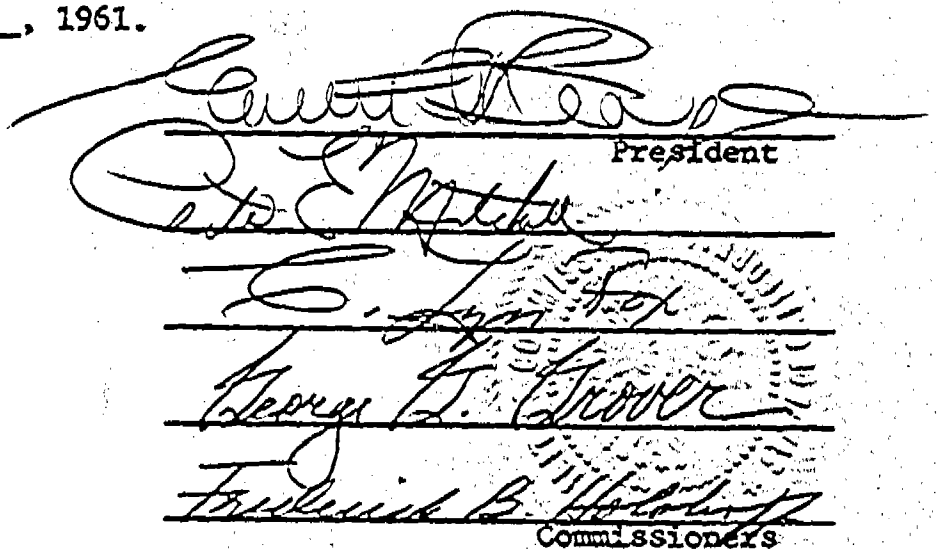 _, 1961.
President
Peter E. Mitchell
C. Lyn Fox
George G. Grover
Frederick B. Holoboff
Commissioners